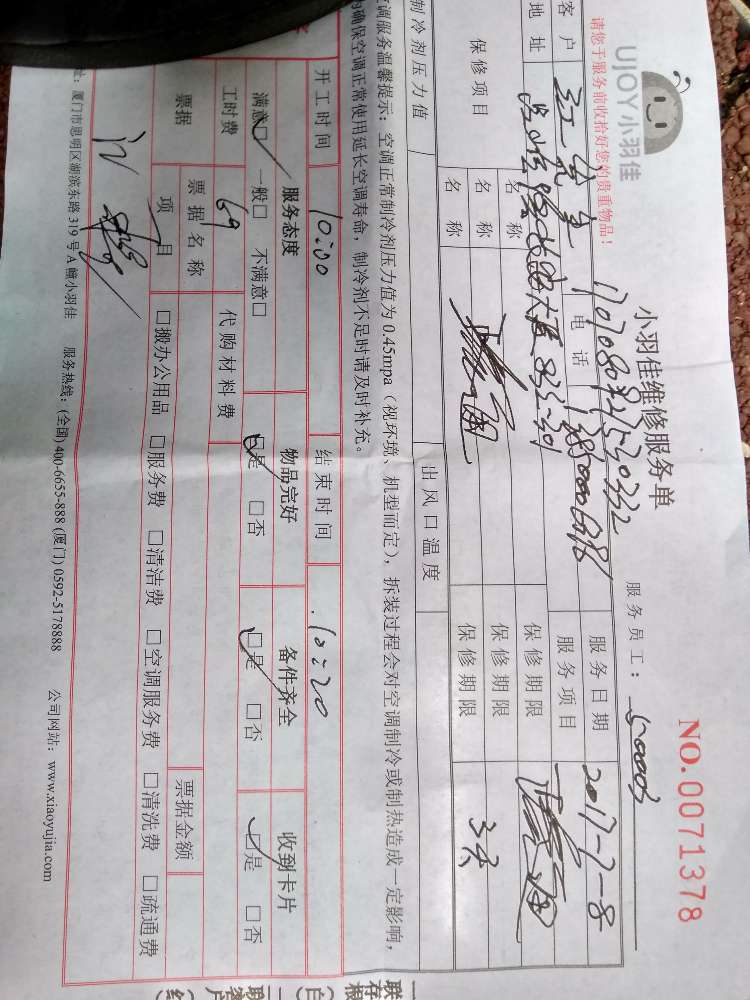 UJOY小羽佳
请您于服务前收拾好您的贵重物品!
小羽佳维修服务单
NO.0071378
服务员工: 50003
客户 电话 服务日期 2017-7-8
地址 服务项目
保修项目 名称 保修期限
名称 保修期限 3天
名称 保修期限
制冷剂压力值 出风口温度
空调服务温馨提示: 空调正常制冷剂压力值为 0.45mpa (视环境、机型而定), 拆装过程会对空调制冷或制热造成一定影响,
为确保空调正常使用延长空调寿命, 制冷剂不足时请及时补充。
开工时间 10:00 结束时间 10:20
服务态度 物品完好 备件齐全 收到卡片
满意□ 一般□ 不满意□ □是 □否 □是 □否 □是 □否
工时费 69 代购材料费
票据 票据名称 票据金额
项目 □搬办公用品 □服务费 □清洁费 □空调服务费 □清洗费 □疏通费
址: 厦门市思明区湖滨东路 319 号 A 幢小羽佳 服务热线: (全国) 400-6655-888 (厦门) 0592-5178888 公司网站: www.xiaoyujia.com